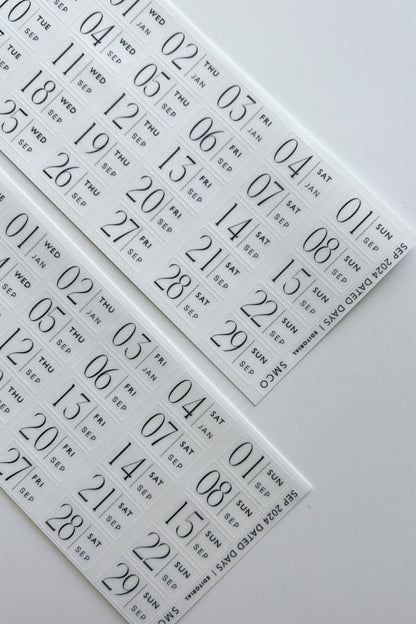 01 WED JAN 02 THU JAN 03 FRI JAN 04 SAT JAN 01 SUN SEP
04 WED SEP 05 THU SEP 06 FRI SEP 07 SAT SEP 08 SUN SEP
10 TUE SEP 11 WED SEP 12 THU SEP 13 FRI SEP 14 SAT SEP 15 SUN SEP
TUE SEP 18 WED SEP 19 THU SEP 20 FRI SEP 21 SAT SEP 22 SUN SEP
25 WED SEP 26 THU SEP 27 FRI SEP 28 SAT SEP 29 SUN SEP
SEP 2024 DATED DAYS | EDITORIAL SMCO
01 WED JAN 02 THU JAN 03 FRI JAN 04 SAT JAN 01 SUN SEP
WED SEP 05 THU SEP 06 FRI SEP 07 SAT SEP 08 SUN SEP
12 THU SEP 13 FRI SEP 14 SAT SEP 15 SUN SEP
20 FRI SEP 21 SAT SEP 22 SUN SEP
27 FRI SEP 28 SAT SEP 29 SUN SEP
SEP 2024 DATED DAYS | EDITORIAL SMCO